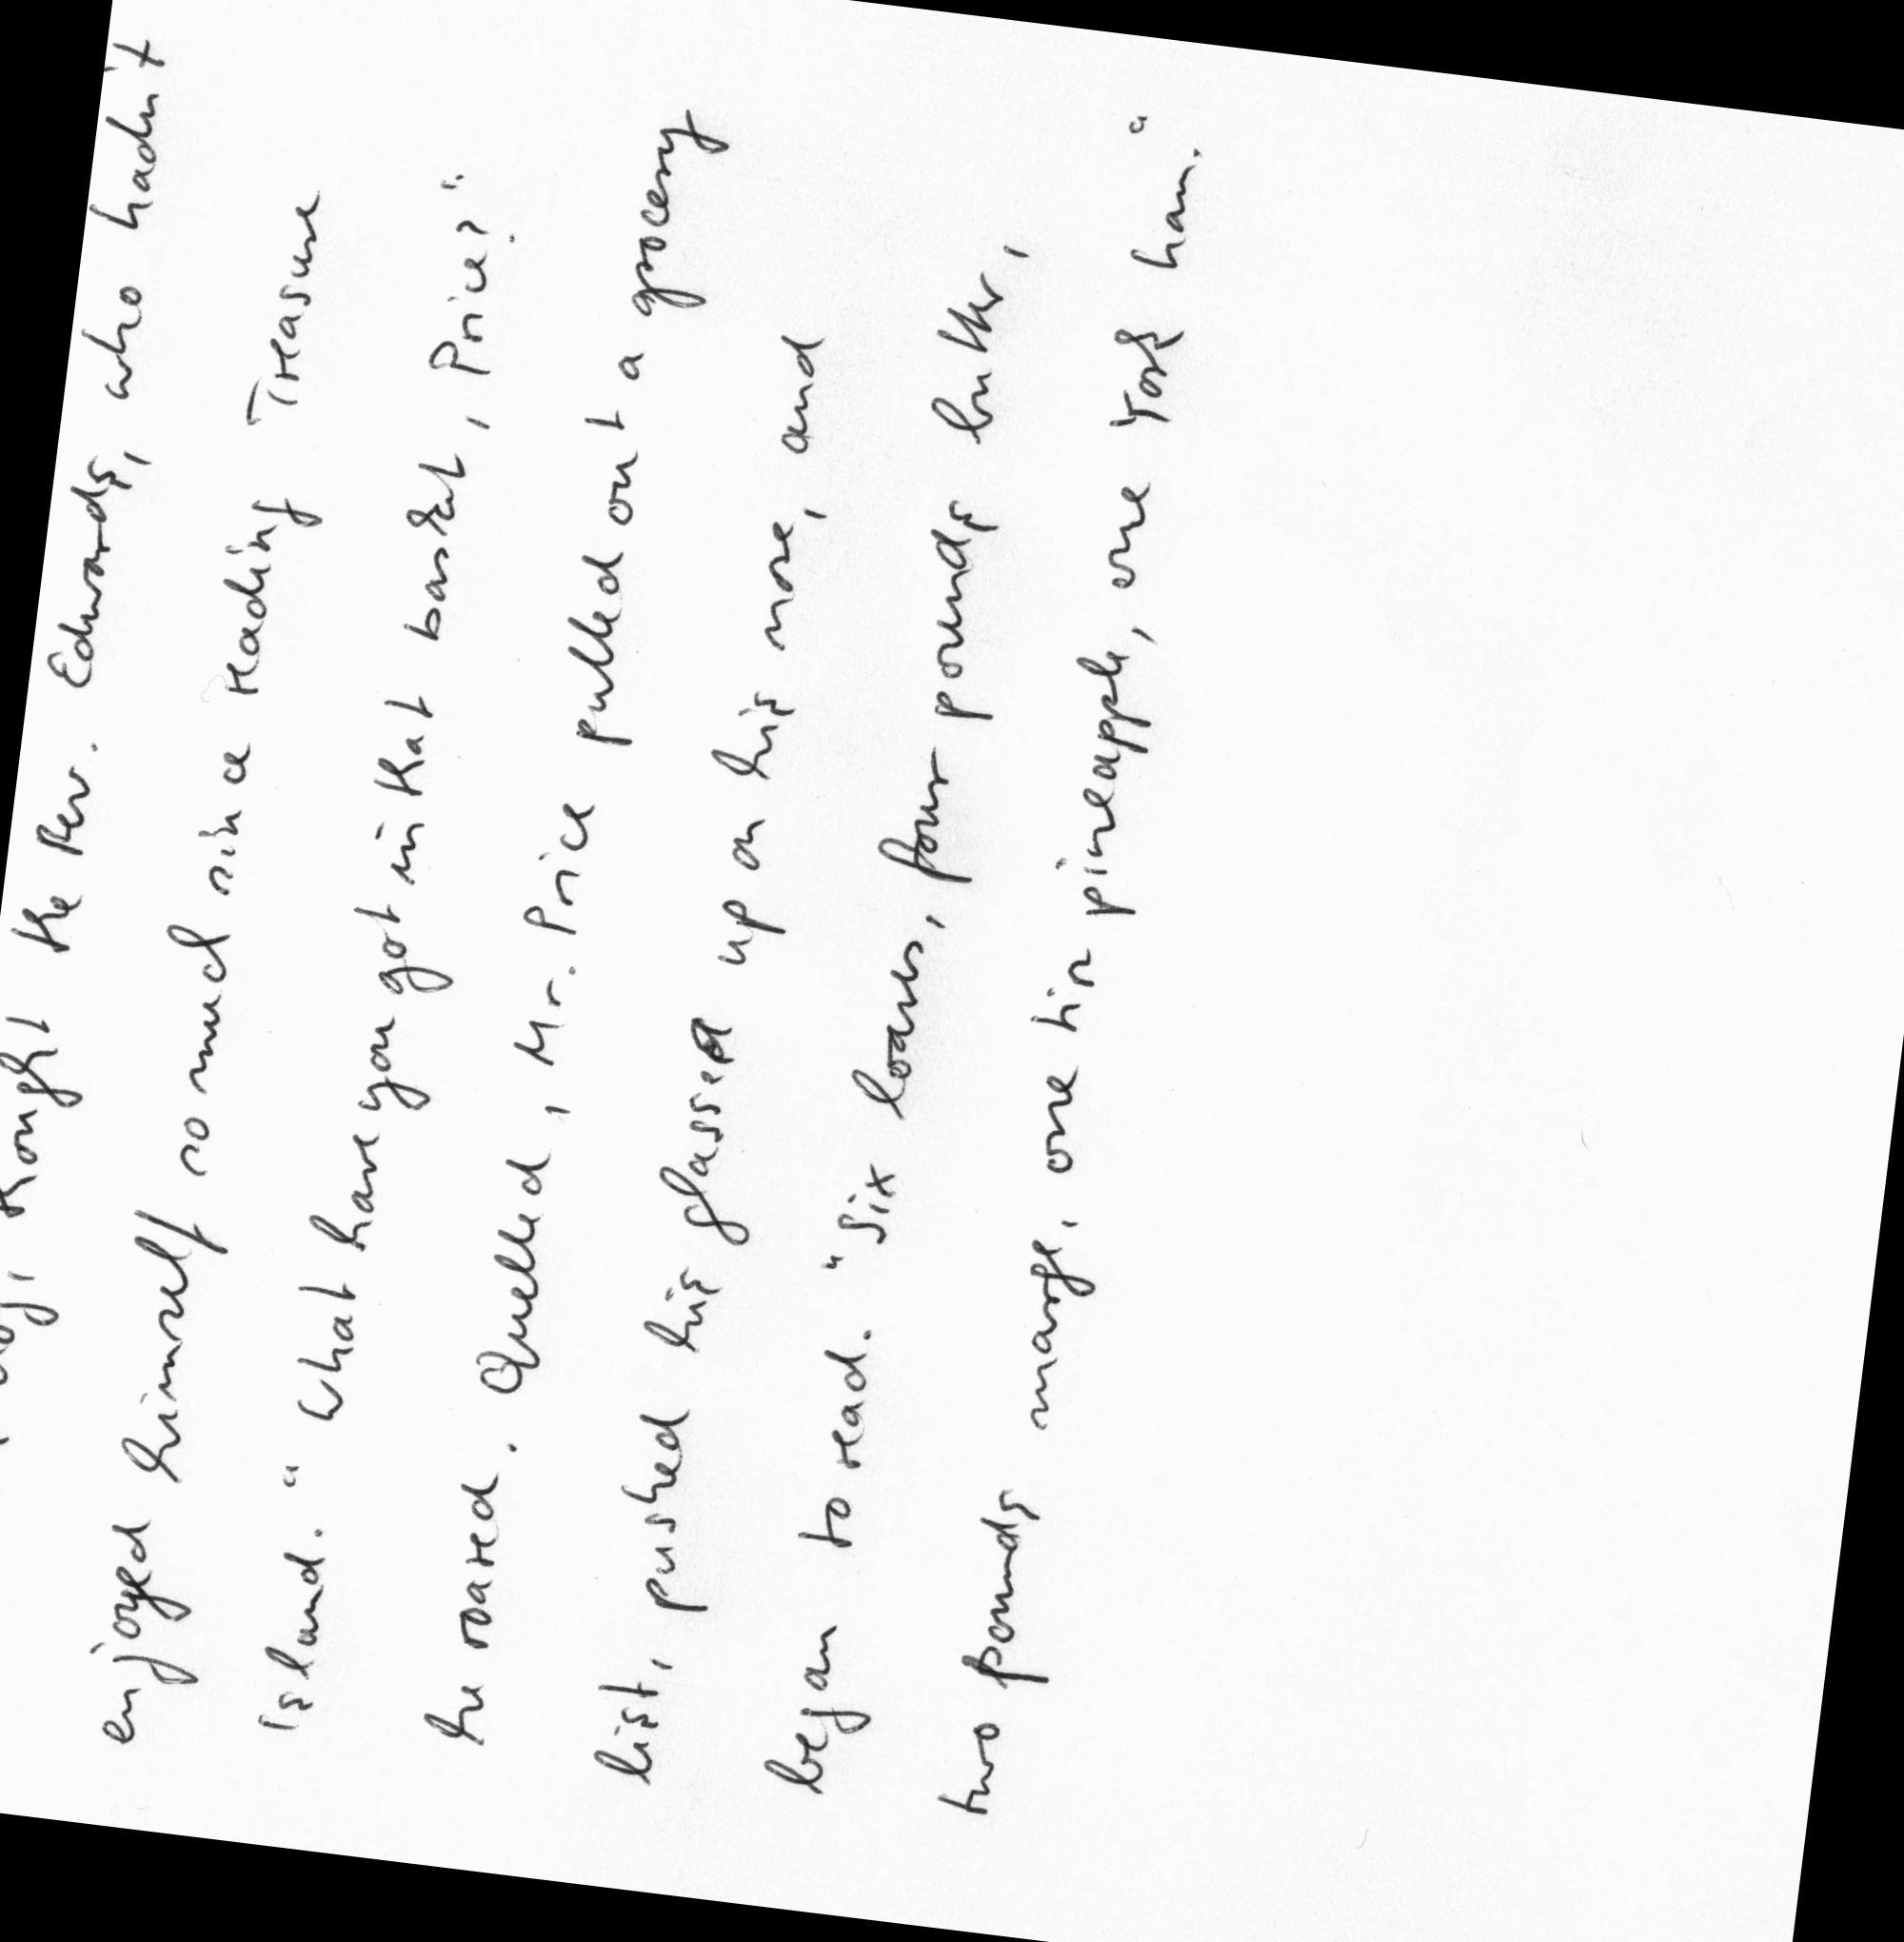 thought the Rev. Edwards, who hadn't
enjoyed himself so much since reading Treasure
Island. "What have you got in that basket, Price?"
he roared. Quelled, Mr. Price pulled out a grocery
list, pushed his glasses up on his nose, and
began to read. "Six loaves, four pounds butter,
two pounds marge, one tin pineapple, one York ham."